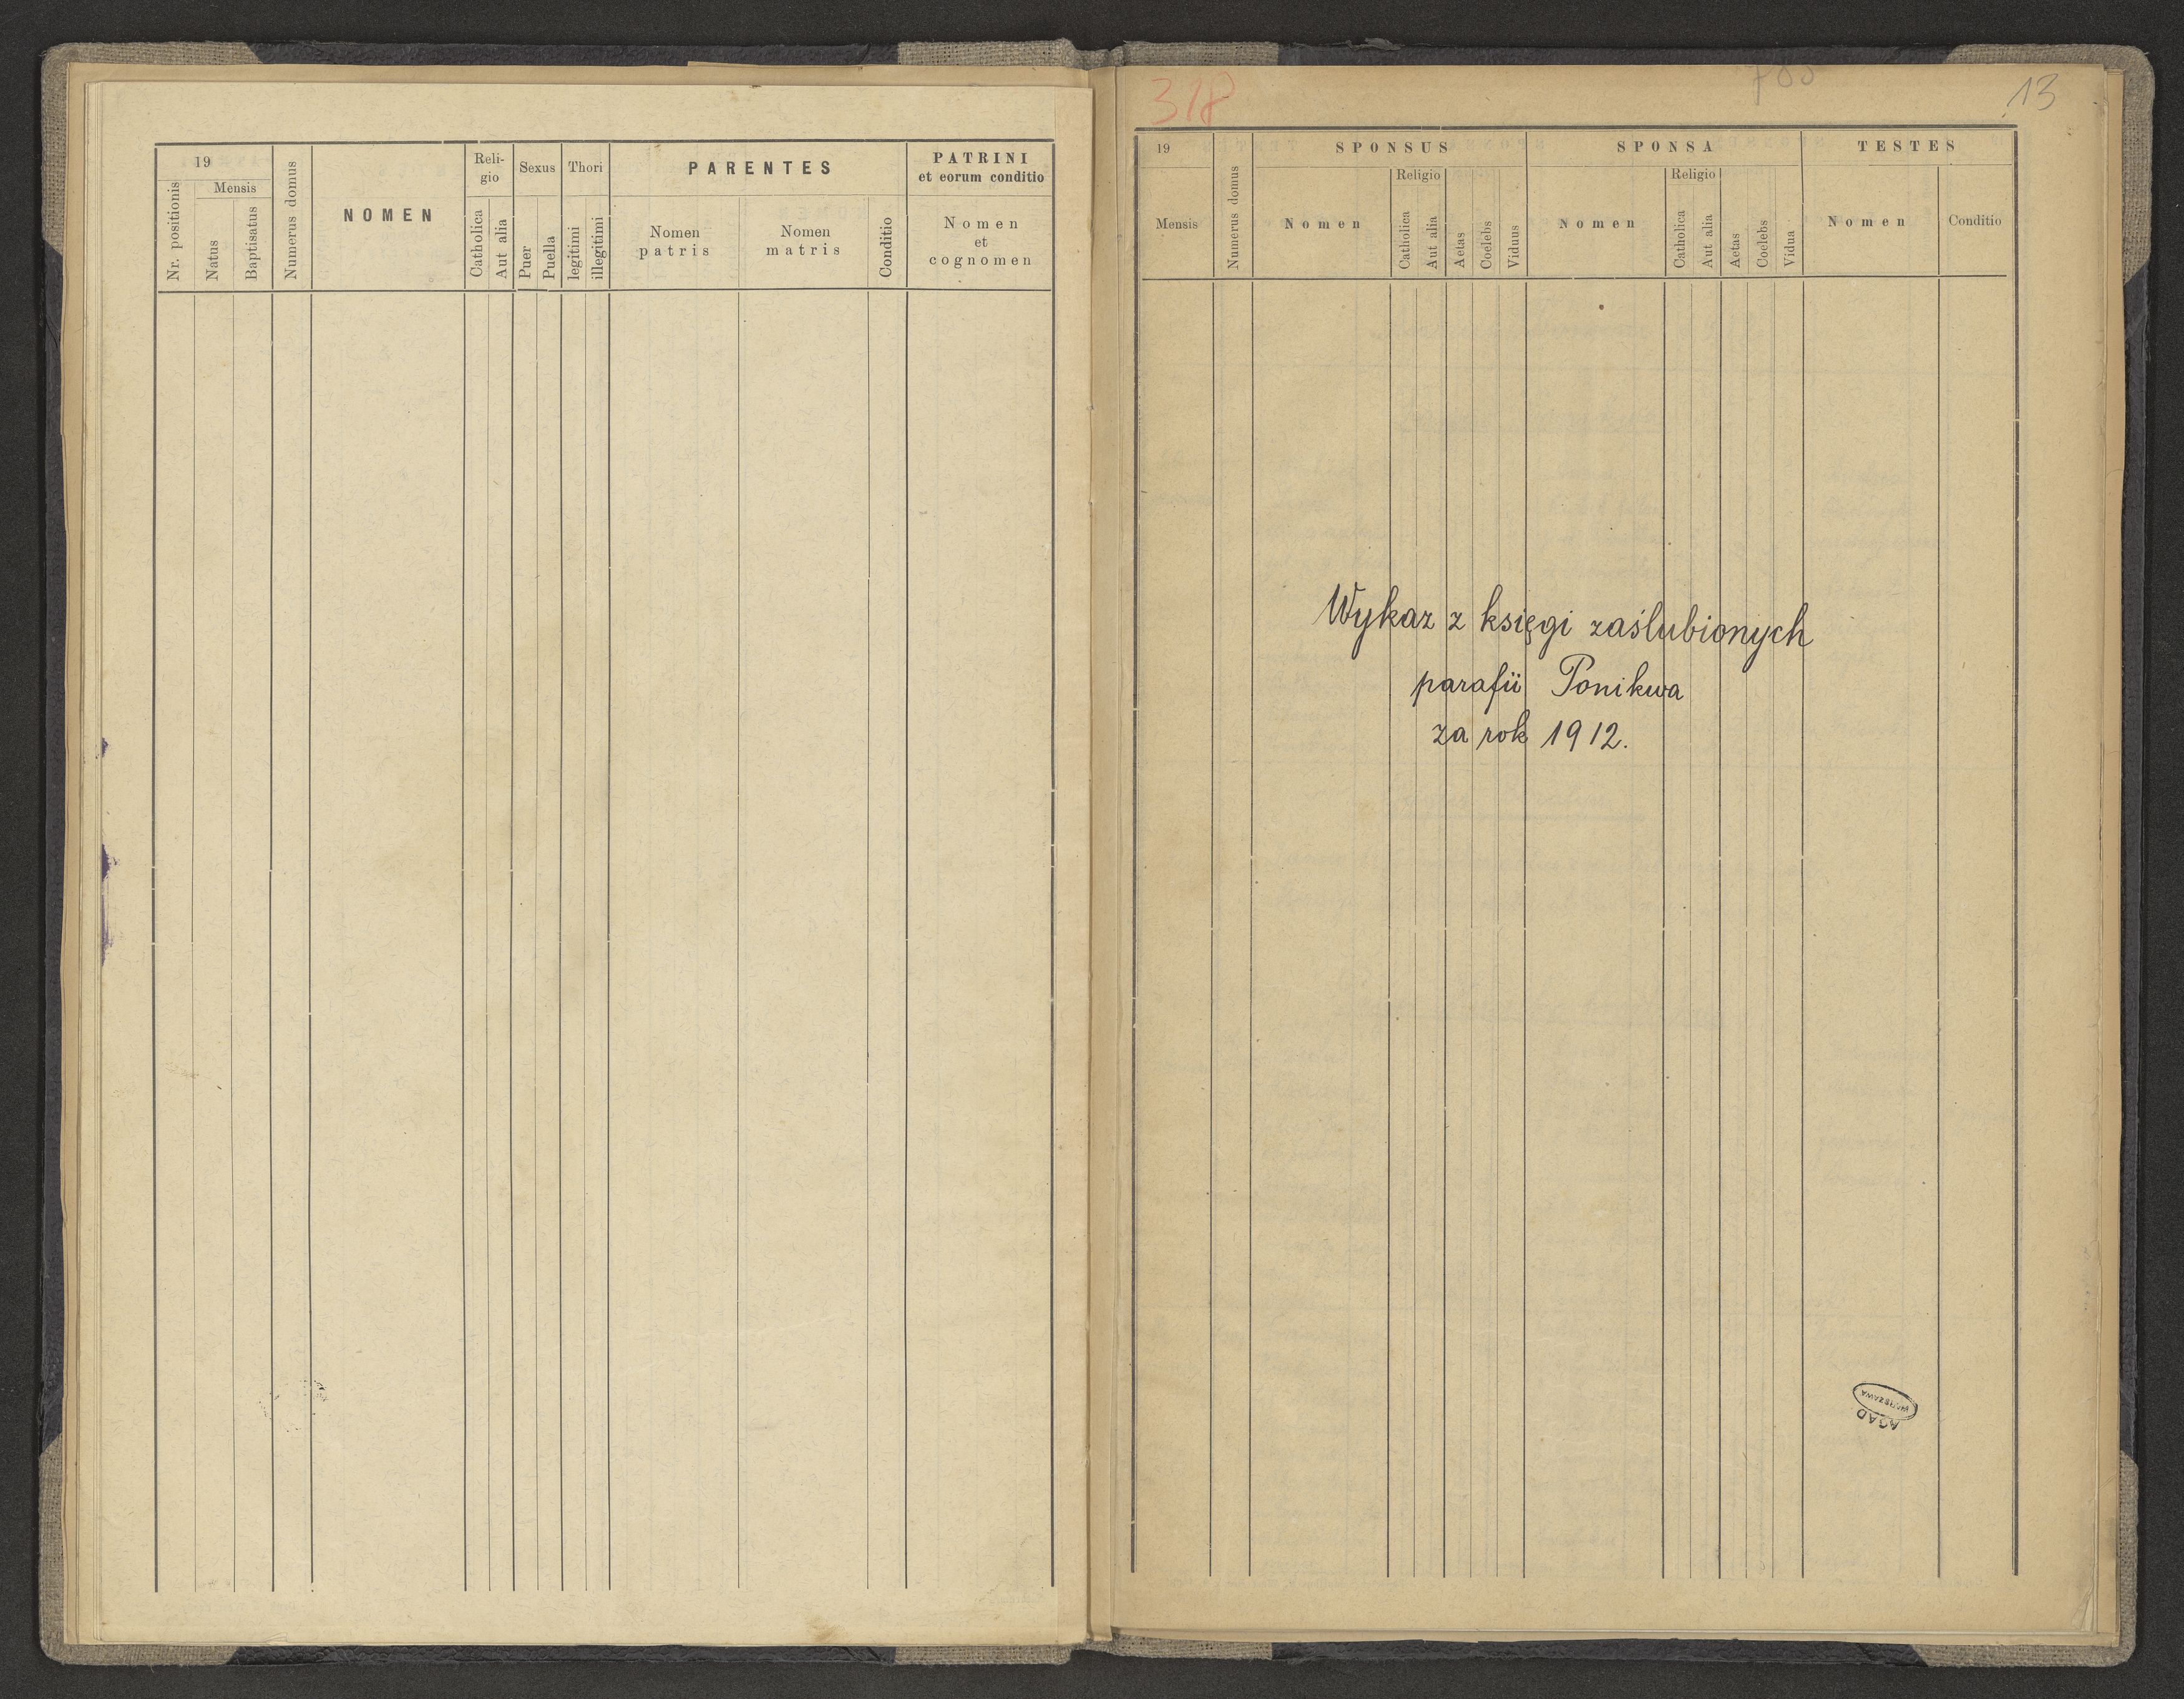 19
Mensis
Nr. positionis
Natus
Baptisatus
Numerus domus
NOMEN
Reli-
gio
Catholica
Aut alia
Sexus
Puer
Puella
Thori
legitimi
illegitimi
PARENTES
Nomen
patris
Nomen
matris
Conditio
PATRINI
et eorum conditio
Nomen
et
cognomen
318
13
19
Mensis
Numerus domus
SPONSUS
Nomen
Religio
Catholica
Aut alia
Aetas
Coelebs
Viduus
SPONSA
Nomen
Religio
Catholica
Aut alia
Aetas
Coelebs
Vidua
TESTES
Nomen
Conditio
Wykaz z księgi zaślubionych
parafii Ponikwa
za rok 1912.
AGAD
WARSZAWA